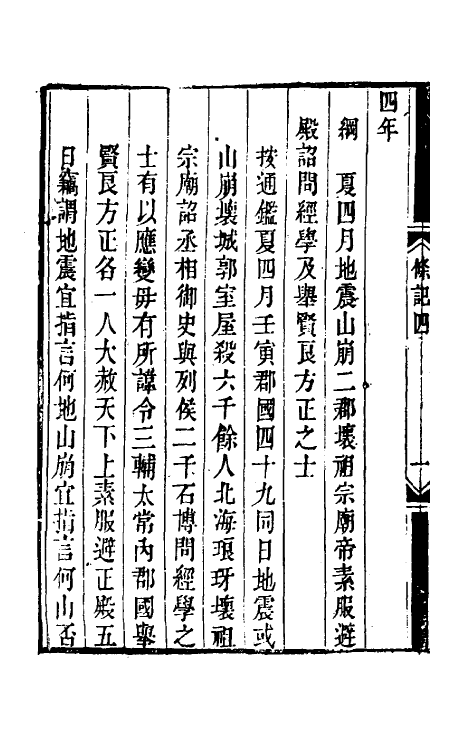 四年
綱　夏四月地震山崩二郡壞祖宗廟帝素服避
殿詔問經學及舉賢良方正之士
按通鑑夏四月壬寅郡國四十九同日地震或
山崩壞城郭室屋殺六千餘人北海琅玡壞祖
宗廟詔丞相御史與列侯二千石博問經學之
士有以應變毋有所諱令三輔太常內郡國舉
賢良方正各一人大赦天下上素服避正殿五
日竊謂地震宜指言何地山崩宜指言何山否
條記四
一